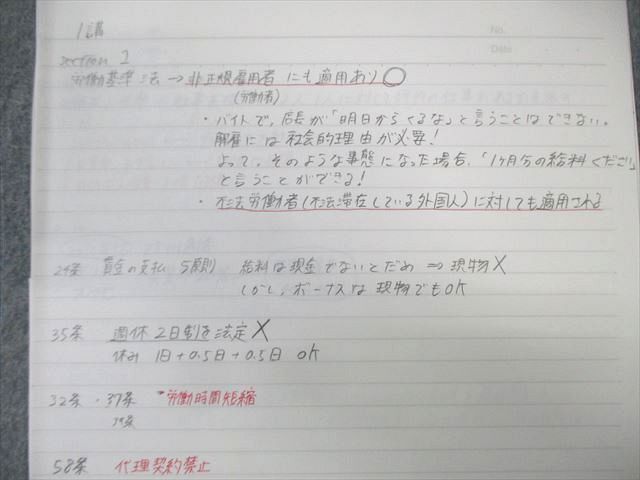 1講
No.
Date
section 1
労働基準法 → 非正規雇用者 にも 適用あり ○
(労働者)
・バイトで、店長が「明日からくるな」と言うことはできない。
解雇には 社会的理由が必要!
よって、そのような事態になった場合、「1ヶ月分の給料ください」
と言うことができる!
・不法労働者(不法滞在している外国人)に対しても適用される
24条 賃金の支払 5原則 給料は現金でないとだめ ⇒ 現物×
しかし、ボーナスは 現物でもOK
35条 週休2日制を法定×
休み 1日+0.5日+0.5日 OK
32条・37条 労働時間短縮
58条 代理契約禁止